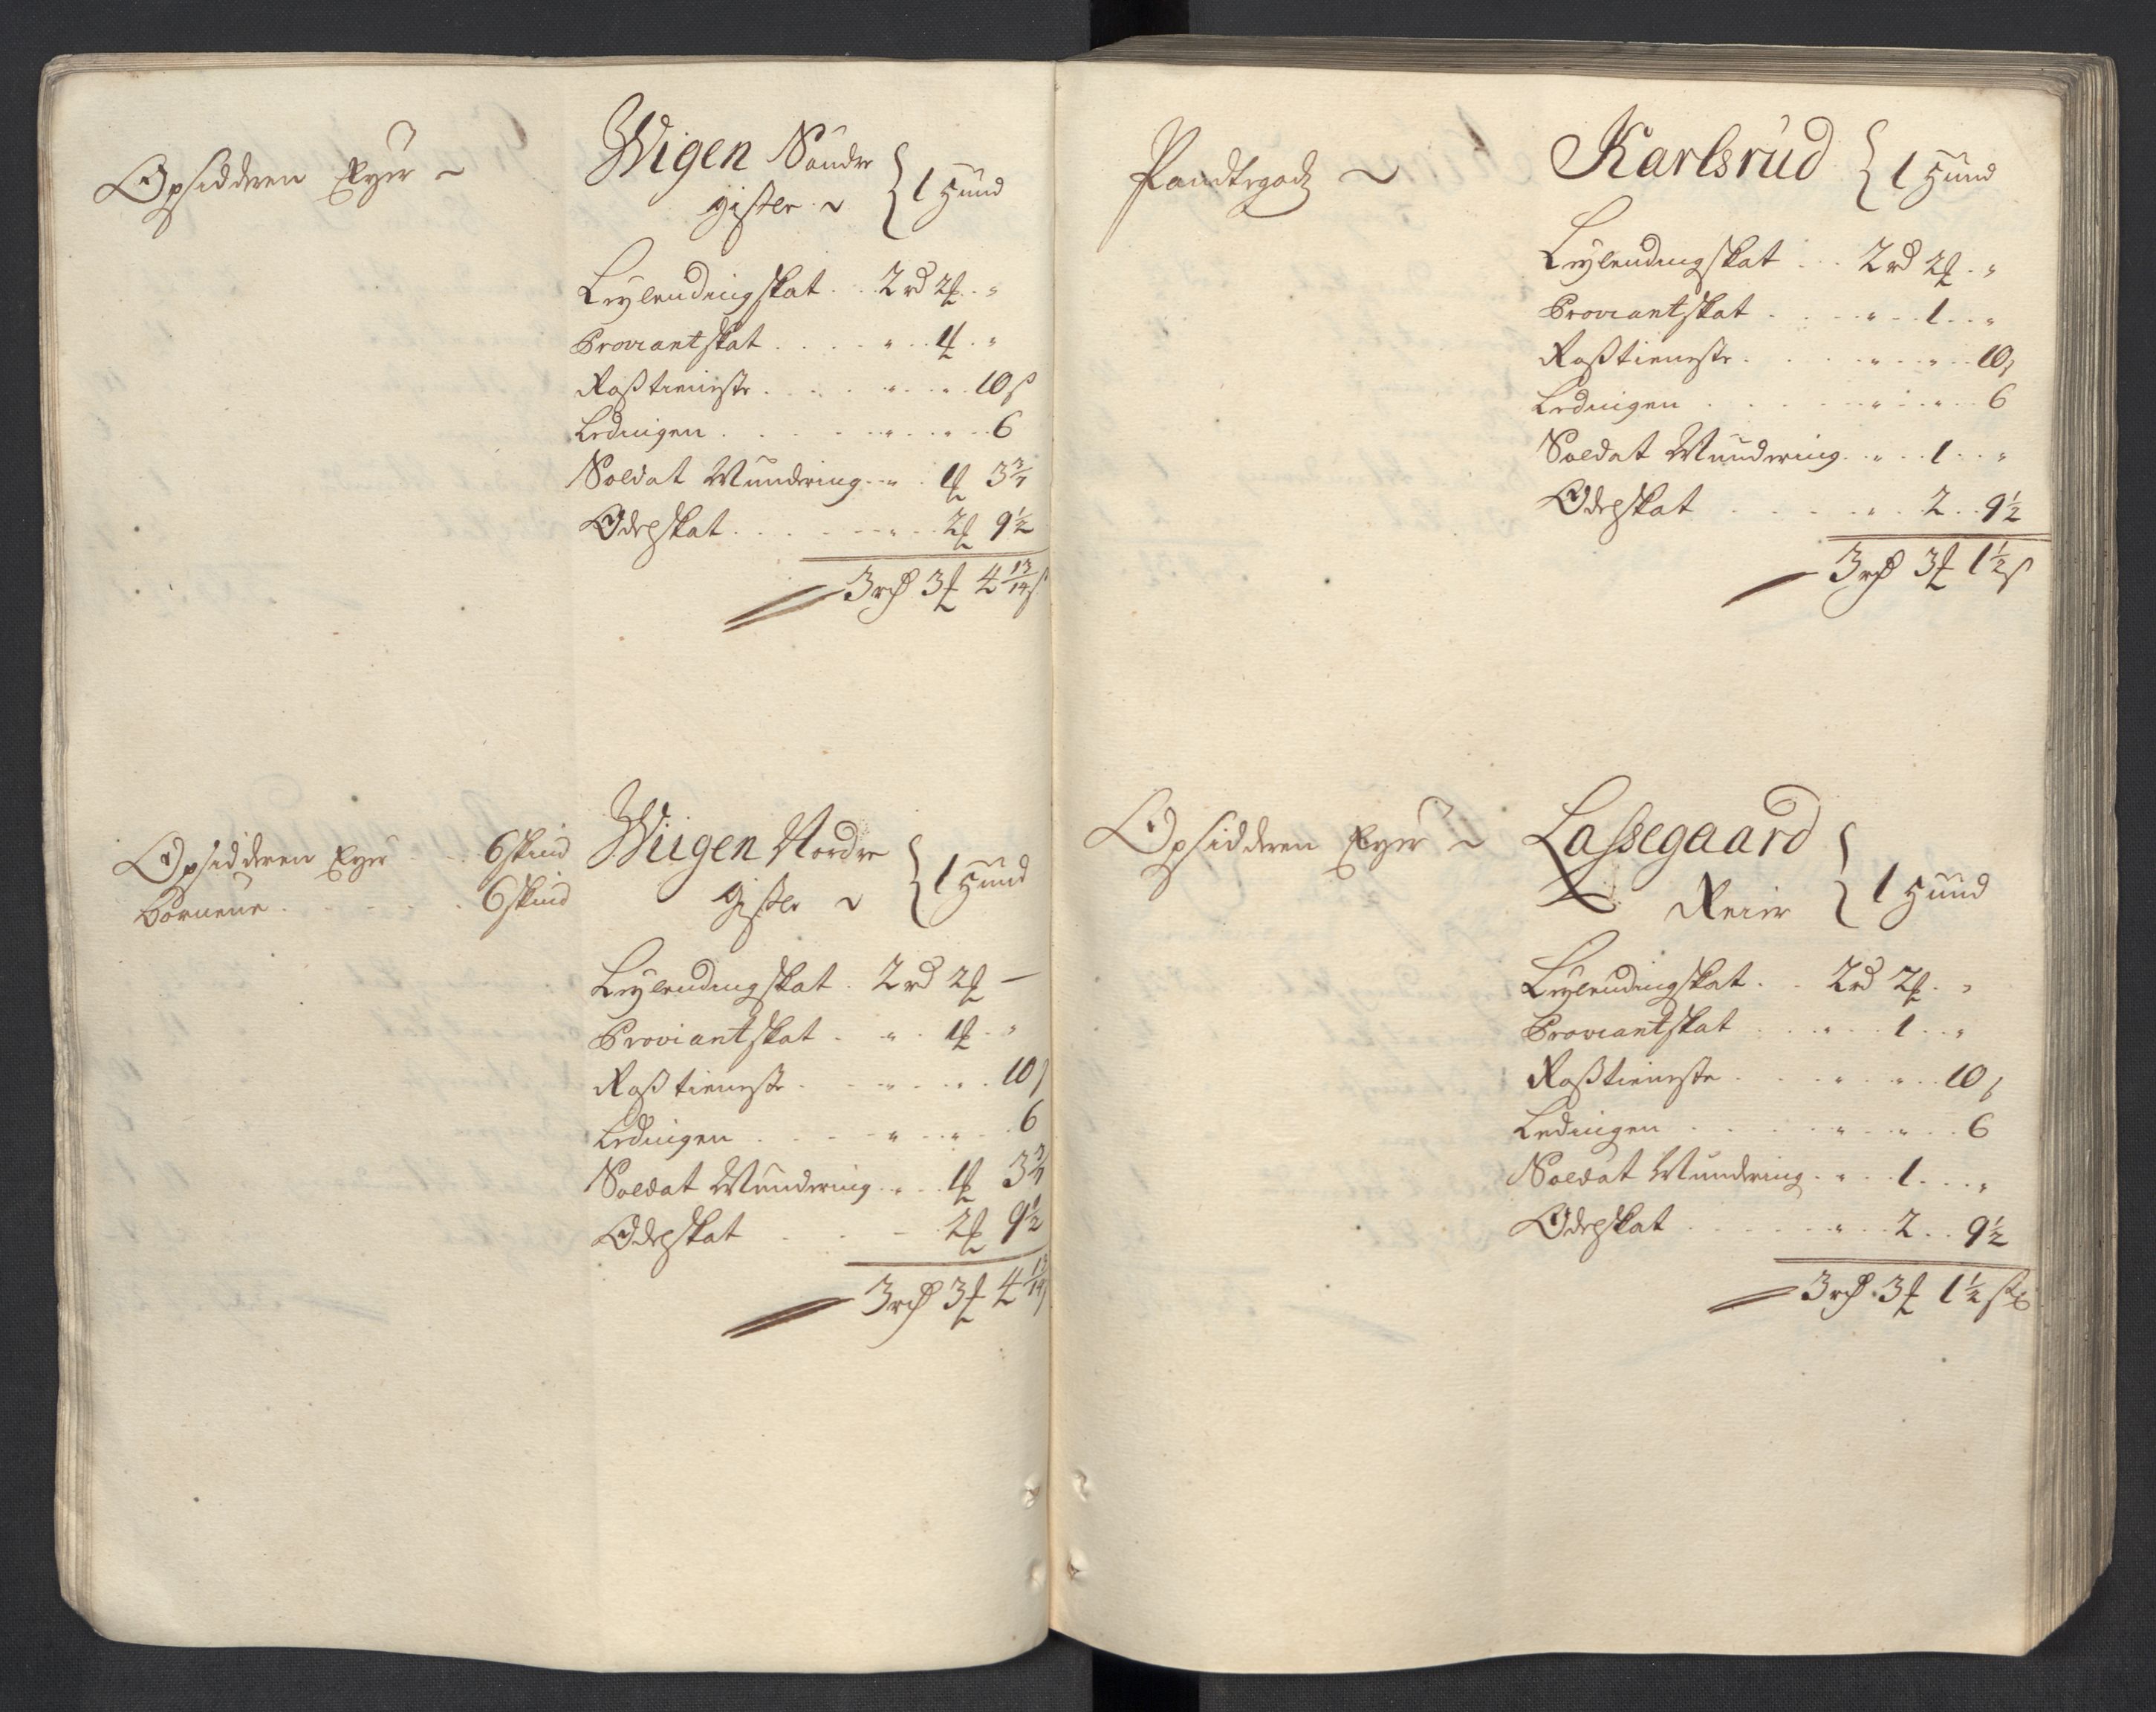 Opsidderen Eyer ~
Wigen Søndre
gister ~ { 1 Hund
Leylendingskat . . 2 rd 2 ℔ . "
Proviantskat . . . . " . . 1 ℔ . "
Rosstieneste . . . . " . . " . 10 s
Ledingen . . . . " . . " . . 6
Soldat Mundering . . " . 1 ℔ 3 3/7
Odelsskat . . . . " . . 2 ℔ 9 1/2
3 rd 3 ℔ 4 13/14 s
Opsidderen Eyer . . . 6 skind
Børnene . . . . . 6 skind
Wiigen Nordre
gister ~ { 1 Hund
Leylendingskat . 2 rd 2 ℔ —
Proviantskat . . " . 1 ℔ . "
Rosstieneste . . . " . . " . 10 s
Ledingen . . . . " . . " . . 6
Soldat Mundering . . " . . 1 ℔ 3 3/7
Odelsskat . . . 2 ℔ 9 1/2
3 rd 3 ℔ 4 13/14 s
Pandtegods ~
Karlsrud { 1 Hund
Leylendingskat . . . 2 rd 2 ℔ . "
Proviantskat . . . . " . . 1 . . "
Rosstieneste . . . . " . . " . . 10 s
Ledingen . . . . . " . . " . . 6
Soldat Mundering . . " . . 1 . . "
Odelsskat . . . . " . . 2 . . 9 1/2
3 rd 3 ℔ 1 1/2 s
Opsidderen Eyer ~
Lassegaard
Reier { 1 Hund
Leylendingskat . . 2 rd 2 ℔ . "
Proviantskat . . . " . . 1 . . "
Rosstieneste . . . . " . . " . . 10 s
Ledingen . . . . . " . . " . . 6
Soldat Mundering . . " . . 1 . . . "
Odelsskat . . . . . " . . 2 . . 9 1/2
3 rd 3 ℔ 1 1/2 s